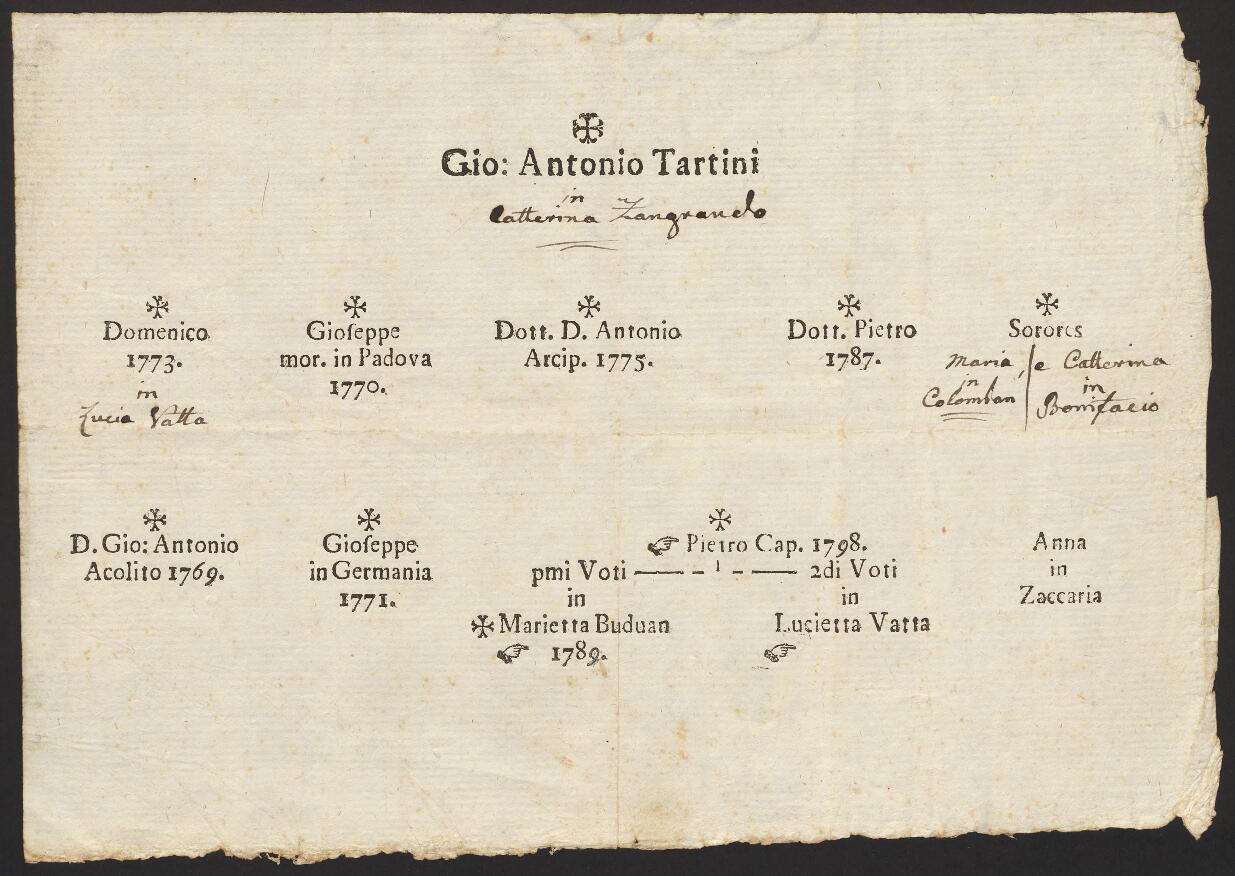 Gio: Antonio Tartini
in
Catterina Zangrando
Domenico
1773.
in
Lucia Vatta
Gioſeppe
mor. in Padova
1770.
Dott. D. Antonio
Arcip. 1775.
Dott. Pietro
1787.
Sorores
Maria, e Catterina
in in
Colomban Bonifacio
D. Gio: Antonio
Acolito 1769.
Gioſeppe
in Germania
1771.
Pietro Cap. 1798.
pmi Voti 2di Voti
in in
Marietta Buduan Lucietta Vatta
1789.
Anna
in
Zaccaria